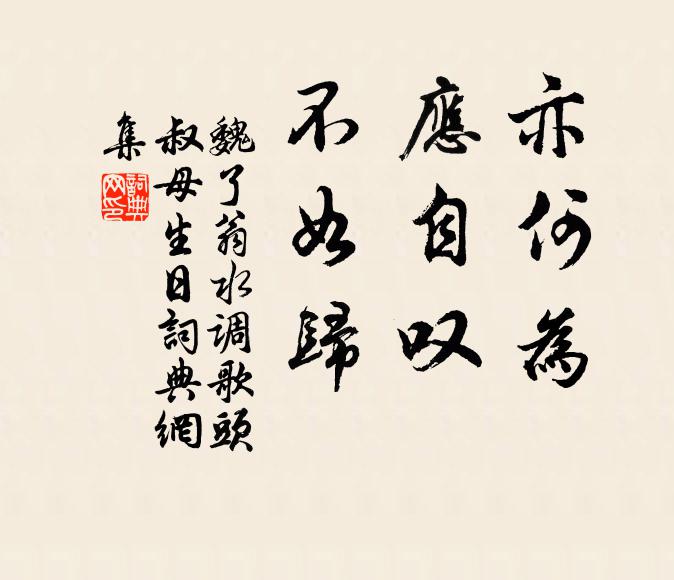 亦何為
應自叹
不如歸
魏了翁水调歌頭
叔母生日詞典網
集
詞典
网印